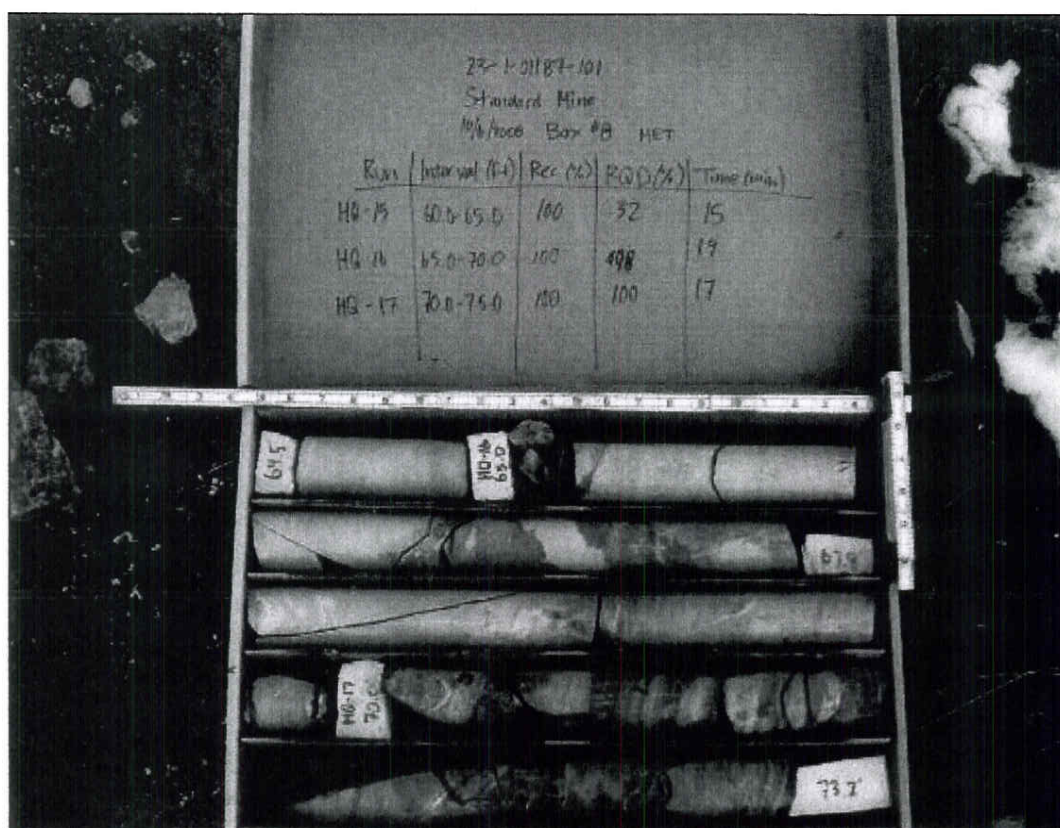 23-1-01187-101
Standard Mine
Box #8 MET
Run Interval (ft) Rec (%) RQD (%) Time (min)
HQ-15 60.0-65.0 100 32 15
HQ-16 65.0-70.0 100 19
HQ-17 70.0-75.0 100 100 17
64.5
HQ-16
65.0
HQ-17